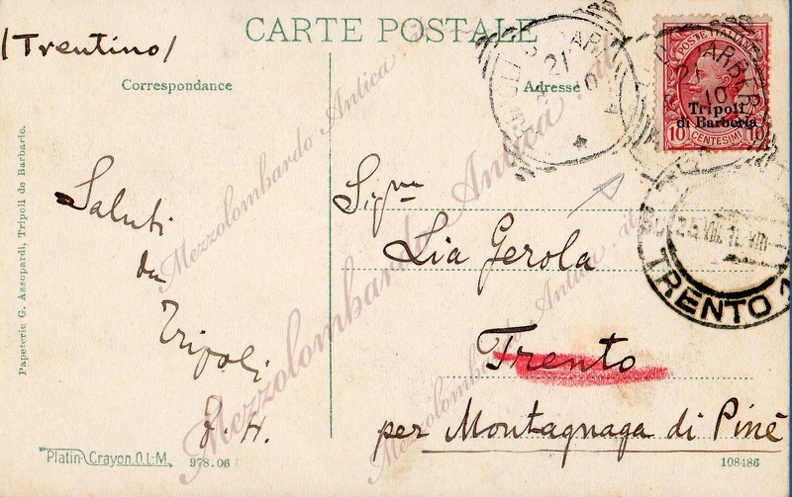 CARTE POSTALE
/Trentino/
Correspondance
Adresse
POSTE ITALIANE
Tripoli
di Barberia
10 CENTESIMI 10
Saluti
da
Tripoli
Signa
Lia Gerola
Trento
per Montagnaga di Pinè
TRENTO
Papeterie G. Azzopardi, Tripoli de Barbarie.
Platin-Crayon. O.L.M. 978.06
108486
Mezzolombardo Antica
Mezzolombardo Antica . al
Mezzolombardo Antica . al